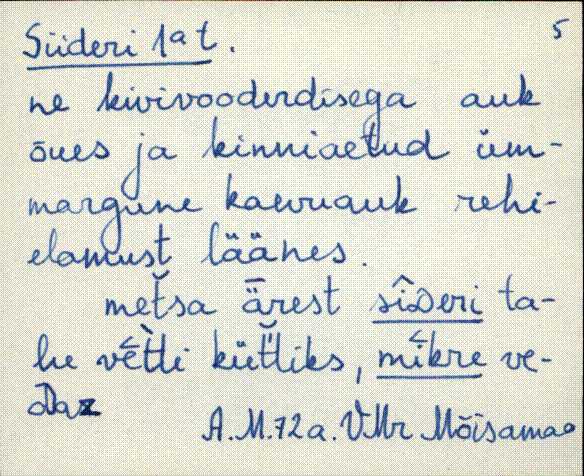 Siideri 1a t.
5
ne kivivooderdisega auk
õues ja kinniaetud üm-
margune kaevuauk rehi-
elamust läänes.
metsa ärest siDeri ta-
he vetti küttiks, mikre ve-
Daz
A.M. 72 a. VMr Mõisamaa